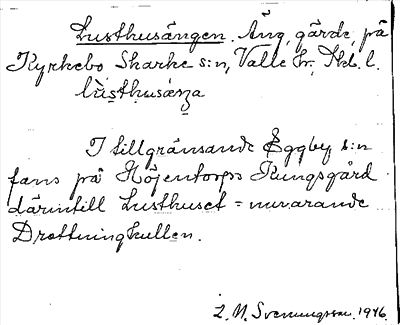 Lusthusängen. Äng, gärde, på
Kyrkebo, Skarke s:n, Valle hr, Skb. l.
lùsthusæŋa
I tillgränsande Eggby s:n
fans på Höjentorps Kungsgård
därintill Lusthuset = nuvarande
Drottningkullen.
L. M. Svenungsson 1946.